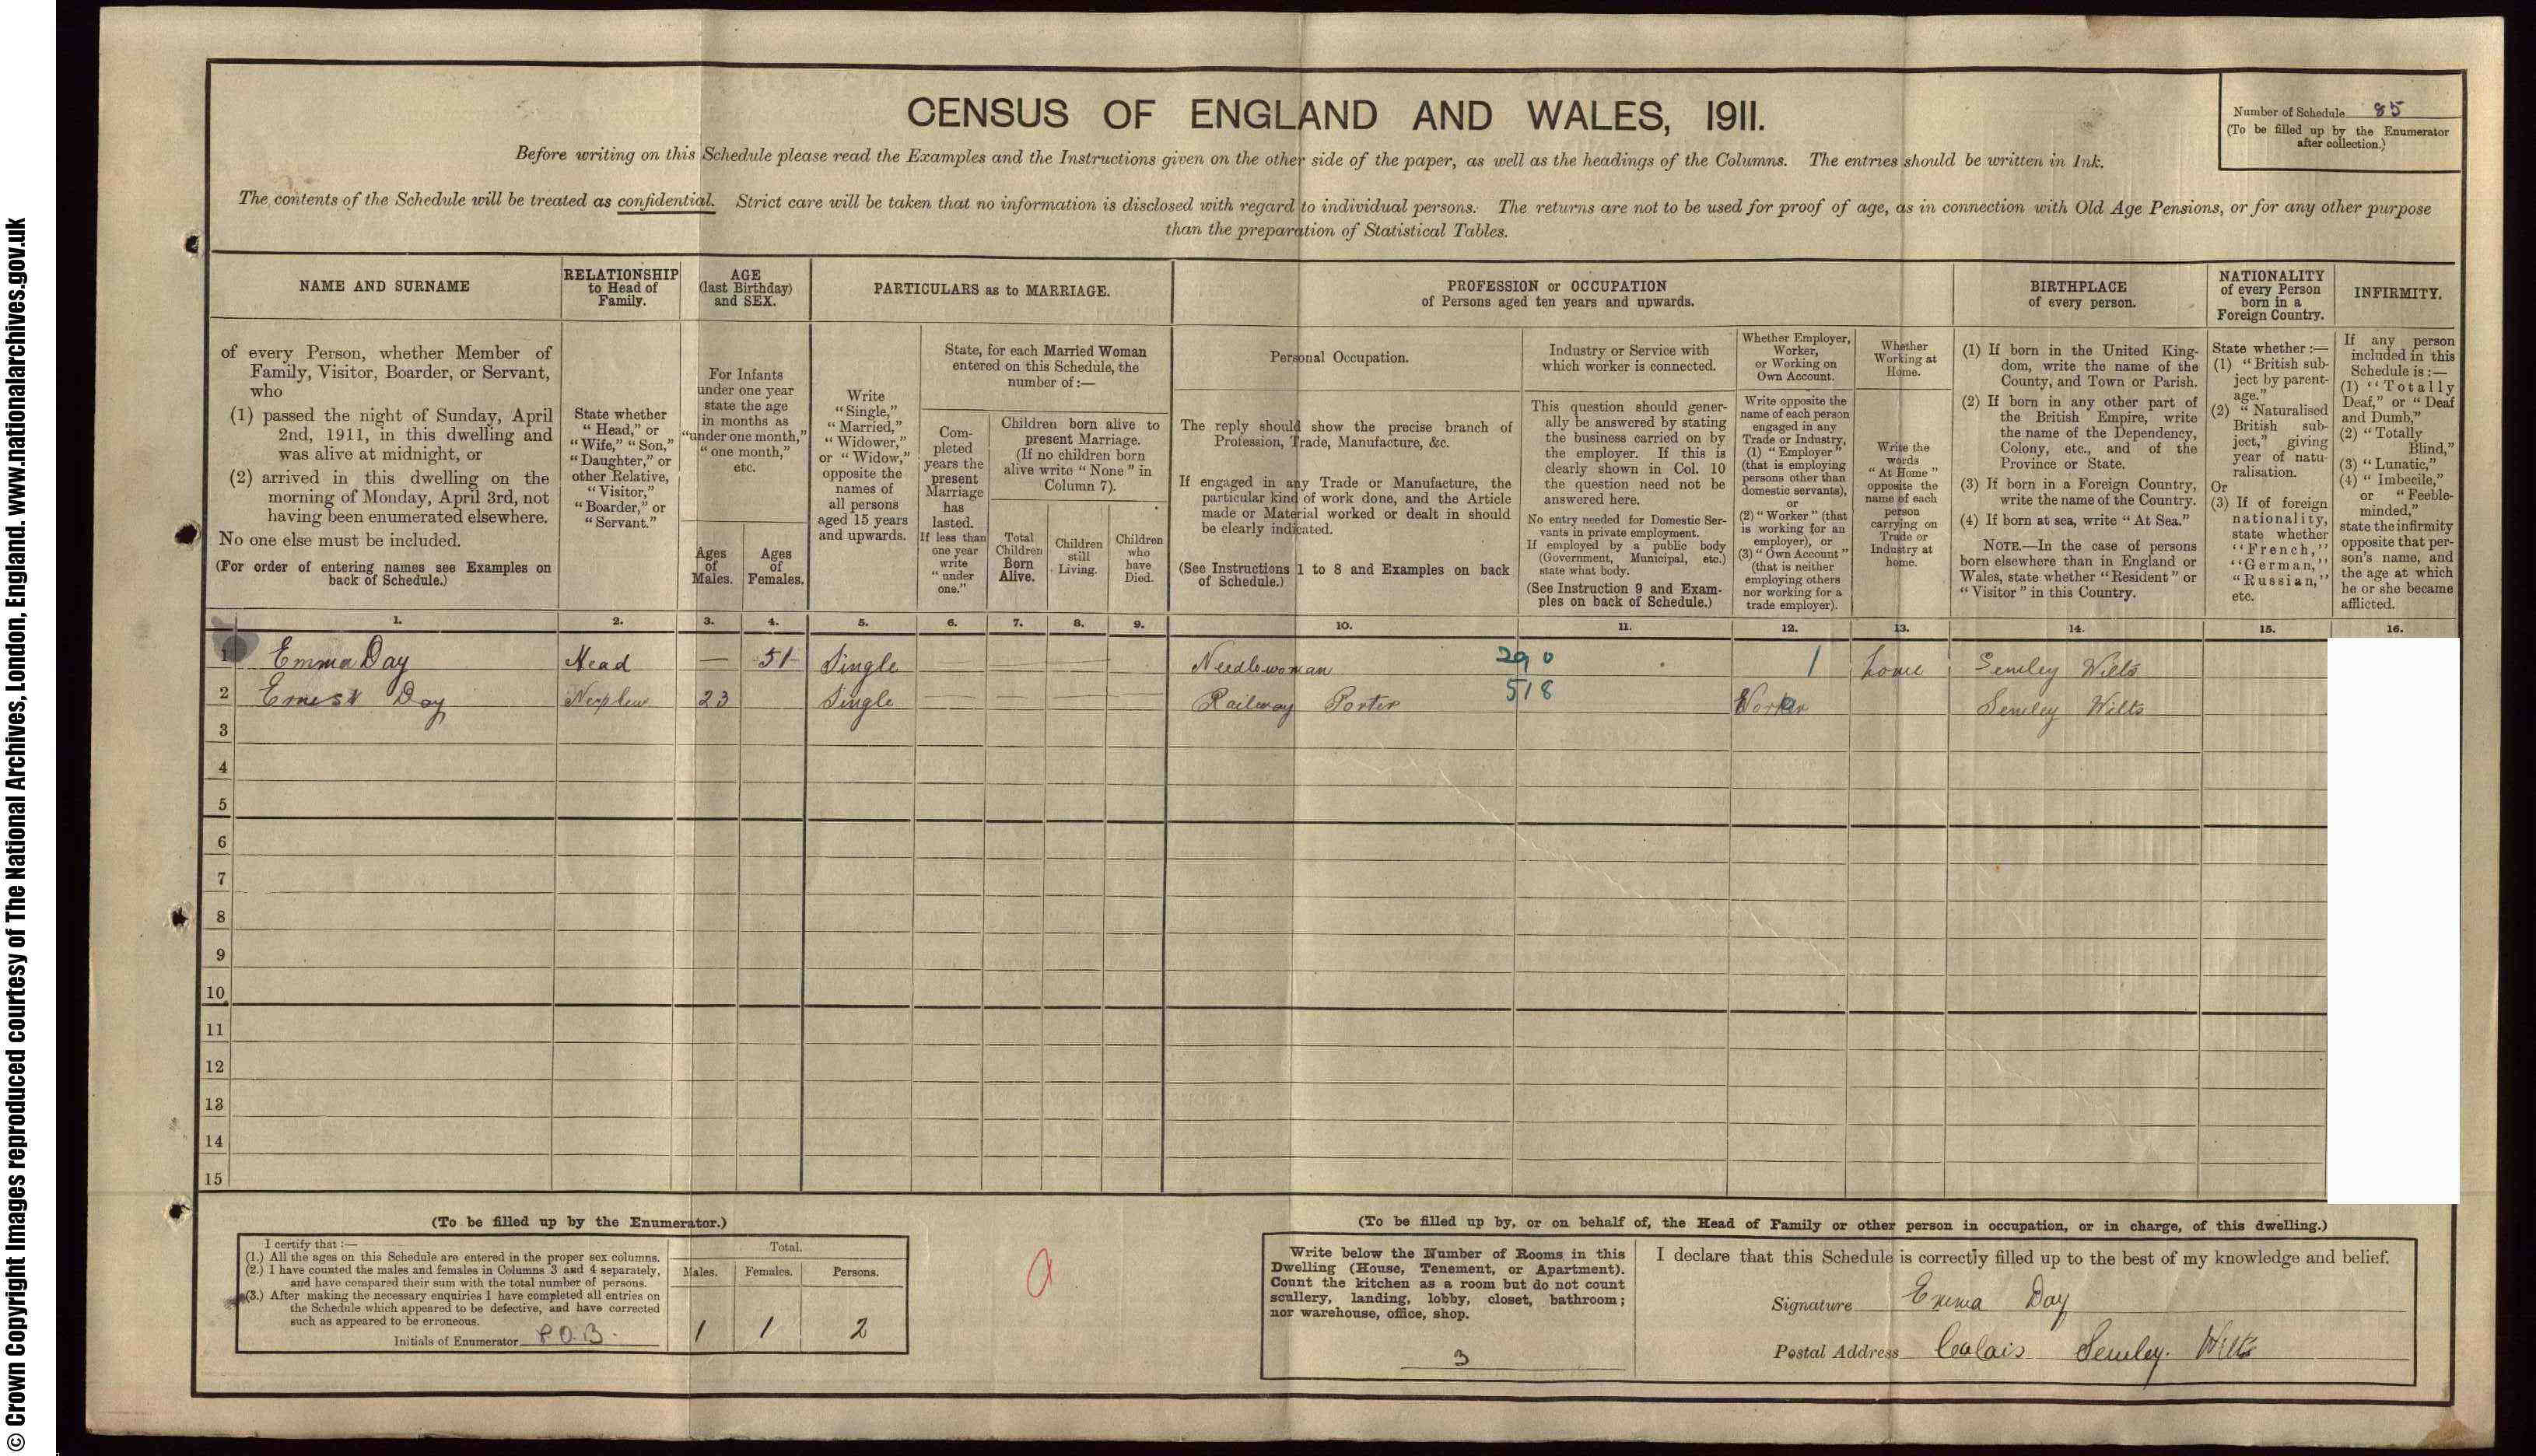 © Crown Copyright Images reproduced courtesy of The National Archives, London, England. www.nationalarchives.gov.uk
CENSUS OF ENGLAND AND WALES, 1911.
Number of Schedule 85
(To be filled up by the Enumerator
after collection.)
Before writing on this Schedule please read the Examples and the Instructions given on the other side of the paper, as well as the headings of the Columns. The entries should be written in Ink.
The contents of the Schedule will be treated as confidential. Strict care will be taken that no information is disclosed with regard to individual persons. The returns are not to be used for proof of age, as in connection with Old Age Pensions, or for any other purpose
than the preparation of Statistical Tables.
NAME AND SURNAME
of every Person, whether Member of
Family, Visitor, Boarder, or Servant,
who
(1) passed the night of Sunday, April
2nd, 1911, in this dwelling and
was alive at midnight, or
(2) arrived in this dwelling on the
morning of Monday, April 3rd, not
having been enumerated elsewhere.
No one else must be included.
(For order of entering names see Examples on
back of Schedule.)
RELATIONSHIP
to Head of
Family.
State whether
"Head," or
"Wife," "Son,"
"Daughter," or
other Relative,
"Visitor,"
"Boarder," or
"Servant."
AGE
(last Birthday)
and SEX.
For Infants
under one year
state the age
in months as
"under one month,"
"one month,"
etc.
Ages
of
Males.
Ages
of
Females.
PARTICULARS as to MARRIAGE.
Write
"Single,"
"Married,"
"Widower,"
or "Widow,"
opposite the
names of
all persons
aged 15 years
and upwards.
State, for each Married Woman
entered on this Schedule, the
number of :—
Com-
pleted
years the
present
Marriage
has
lasted.
If less than
one year
write
"under
one."
Children born alive to
present Marriage.
(If no children born
alive write "None" in
Column 7).
Total
Children
Born
Alive.
Children
still
Living.
Children
who
have
Died.
PROFESSION or OCCUPATION
of Persons aged ten years and upwards.
Personal Occupation.
The reply should show the precise branch of
Profession, Trade, Manufacture, &c.
If engaged in any Trade or Manufacture, the
particular kind of work done, and the Article
made or Material worked or dealt in should
be clearly indicated.
(See Instructions 1 to 8 and Examples on back
of Schedule.)
Industry or Service with
which worker is connected.
This question should gener-
ally be answered by stating
the business carried on by
the employer. If this is
clearly shown in Col. 10
the question need not be
answered here.
No entry needed for Domestic Ser-
vants in private employment.
If employed by a public body
(Government, Municipal, etc.)
state what body.
(See Instruction 9 and Exam-
ples on back of Schedule.)
Whether Employer,
Worker,
or Working on
Own Account.
Write opposite the
name of each person
engaged in any
Trade or Industry,
(1) "Employer"
(that is employing
persons other than
domestic servants),
or
(2) "Worker" (that
is working for an
employer), or
(3) "Own Account"
(that is neither
employing others
nor working for a
trade employer).
Whether
Working at
Home.
Write the
words
"At Home"
opposite the
name of each
person
carrying on
Trade or
Industry at
home.
BIRTHPLACE
of every person.
(1) If born in the United King-
dom, write the name of the
County, and Town or Parish.
(2) If born in any other part of
the British Empire, write
the name of the Dependency,
Colony, etc., and of the
Province or State.
(3) If born in a Foreign Country,
write the name of the Country.
(4) If born at sea, write "At Sea."
NOTE.—In the case of persons
born elsewhere than in England or
Wales, state whether "Resident" or
"Visitor" in this Country.
NATIONALITY
of every Person
born in a
Foreign Country.
State whether :—
(1) "British sub-
ject by parent-
age."
(2) "Naturalised
British sub-
ject," giving
year of natu-
ralisation.
Or
(3) If of foreign
nationality,
state whether
"French,"
"German,"
"Russian,"
etc.
INFIRMITY.
If any person
included in this
Schedule is :—
(1) "Totally
Deaf," or "Deaf
and Dumb,"
(2) "Totally
Blind,"
(3) "Lunatic,"
(4) "Imbecile,"
or "Feeble-
minded,"
state the infirmity
opposite that per-
son's name, and
the age at which
he or she became
afflicted.
1. 2. 3. 4. 5. 6. 7. 8. 9. 10. 11. 12. 13. 14. 15. 16.
1 Emma Day Head — 51 Single — — — — Needlewoman 29 0 1 home Semley Wilts
2 Ernest Day Nephew 23 Single — — — — Railway Porter 518 Worker Semley Wilts
3
4
5
6
7
8
9
10
11
12
13
14
15
(To be filled up by the Enumerator.)
I certify that :—
(1.) All the ages on this Schedule are entered in the proper sex columns.
(2.) I have counted the males and females in Columns 3 and 4 separately,
and have compared their sum with the total number of persons.
(3.) After making the necessary enquiries I have completed all entries on
the Schedule which appeared to be defective, and have corrected
such as appeared to be erroneous.
Initials of Enumerator P.O.B.
Total.
Males. Females. Persons.
1 1 2
(To be filled up by, or on behalf of, the Head of Family or other person in occupation, or in charge, of this dwelling.)
Write below the Number of Rooms in this
Dwelling (House, Tenement, or Apartment).
Count the kitchen as a room but do not count
scullery, landing, lobby, closet, bathroom;
nor warehouse, office, shop.
3
I declare that this Schedule is correctly filled up to the best of my knowledge and belief.
Signature Emma Day
Postal Address Calais Semley. Wilts